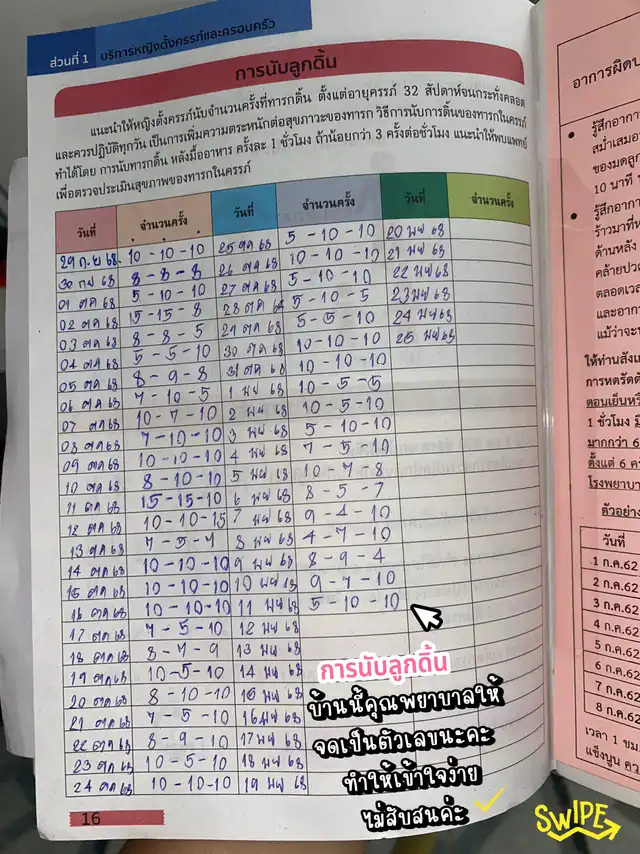 ส่วนที่ 1 บริการหญิงตั้งครรภ์และครอบครัว
การนับลูกดิ้น
แนะนำให้หญิงตั้งครรภ์นับจำนวนครั้งที่ทารกดิ้น ตั้งแต่อายุครรภ์ 32 สัปดาห์จนกระทั่งคลอด
และควรปฏิบัติทุกวัน เป็นการเพิ่มความตระหนักต่อสุขภาวะของทารก วิธีการนับการดิ้นของทารกในครรภ์
ทำได้โดย การนับทารกดิ้น หลังมื้ออาหาร ครั้งละ 1 ชั่วโมง ถ้าน้อยกว่า 3 ครั้งต่อชั่วโมง แนะนำให้พบแพทย์
เพื่อตรวจประเมินสุขภาพของทารกในครรภ์
วันที่ จำนวนครั้ง วันที่ จำนวนครั้ง วันที่ จำนวนครั้ง
29 ก.ย 68 10-10-10 25 ตค 68 5-10-10 20 พย 68
30 กย 68 8-8-8 26 ตค 68 10-10-10 21 พย 68
01 ตค 68 5-10-10 27 ตค 68 5-10-10 22 พย 68
02 ตค 68 15-15-8 28 ตค 68 5-10-5 23 พย 68
03 ตค 68 8-8-5 29 ตค 68 5-5-10 24 พย 68
04 ตค 68 5-5-10 30 ตค 68 10-10-10 25 พย 68
05 ตค 68 8-9-8 31 ตค 68 10-10-10
06 ตค 68 7-10-5 1 พย 68 10-5-5
07 ตค 68 10-7-10 2 พย 68 10-5-10
08 ตค 68 7-10-10 3 พย 68 5-10-10
09 ตค 68 10-10-10 4 พย 68 7-5-10
10 ตค 68 8-10-10 5 พย 68 10-7-8
11 ตค 68 15-15-10 6 พย 68 8-5-7
12 ตค 68 10-10-15 7 พย 68 9-4-10
13 ตค 68 7-5-7 8 พย 68 4-7-10
14 ตค 68 10-10-10 9 พย 68 8-9-4
15 ตค 68 10-10-10 10 พย 68 9-7-10
16 ตค 68 10-10-10 11 พย 68 5-10-10
17 ตค 68 7-5-10 12 พย 68
18 ตค 68 8-7-9 13 พย 68
19 ตค 68 10-5-10 14 พย 68
20 ตค 68 8-10-10 15 พย 68
21 ตค 68 7-5-10 16 พย 68
22 ตค 68 8-9-10 17 พย 68
23 ตค 68 10-5-10 18 พย 68
24 ตค 68 10-10-10 19 พย 68
16
การนับลูกดิ้น
บ้านนี้คุณพยาบาลให้
จดเป็นตัวเลขนะคะ
ทำให้เข้าใจง่าย
ไม่สับสนค่ะ
SWIPE
อาการผิดป
รู้สึกอากา
สม่ำเสมอ
ของมดลูก
10 นาที
รู้สึกอากา
ร้าวมาที่ห
ด้านหลัง
คล้ายปวด
ตลอดเวล
และอากา
แม้ว่าจะ
ให้ท่านสังเ
การหดรัดตั
ตอนเย็นหรื
1 ชั่วโมง
มากกว่า 6
ตั้งแต่ 6 ค
โรงพยาบา
ตัวอย่าง
วันที่
1 ก.ค.62
2 ก.ค.62
3 ก.ค.62
4 ก.ค.62
5 ก.ค.62
6 ก.ค.62
7 ก.ค.62
8 ก.ค.62
เวลา 1 ชม.
แข็งนูน คว